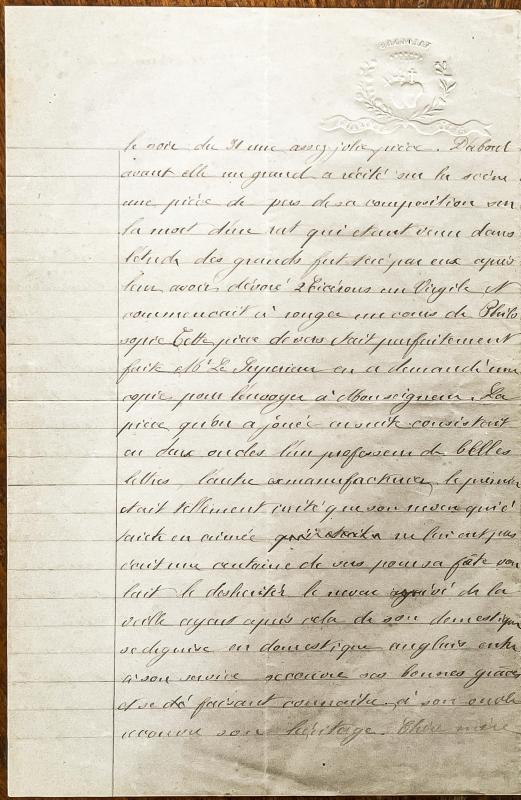 le soir du 31 une assez jolie pièce. Dabord
avant elle un grand a récité sur la scène
une pièce de pers de sa composition sur
la mort d'un rat qui étant venu dans
l'étude des grands fut tué par eux après
leur avoir dévoré 2 Cicérons un Virgile et
commencait à ronger un cours de Philo
sopie Cette pièce de vers était parfaitement
faite Mr Le Superieur en a demandé une
copie pour l'envoyer à Monseigneur. La
pièce qu'on a jouée ensuite consistait
en deux oncles l'un professeur de belles
lettres, l'autre manufacturier, le premier
était tellement irrité que son neveu qui é
tait en année ne lui ont pas
écrit une centaine de vers pour sa fête vou
lait le desheriter le neveu arrivé de la
veille ayant appris cela de son domestique
se deguise en domestique anglais entre
à son service recouvre ses bonnes grâces
et se faisant connaitre à son oncle
recouvre son héritage. Chère mère